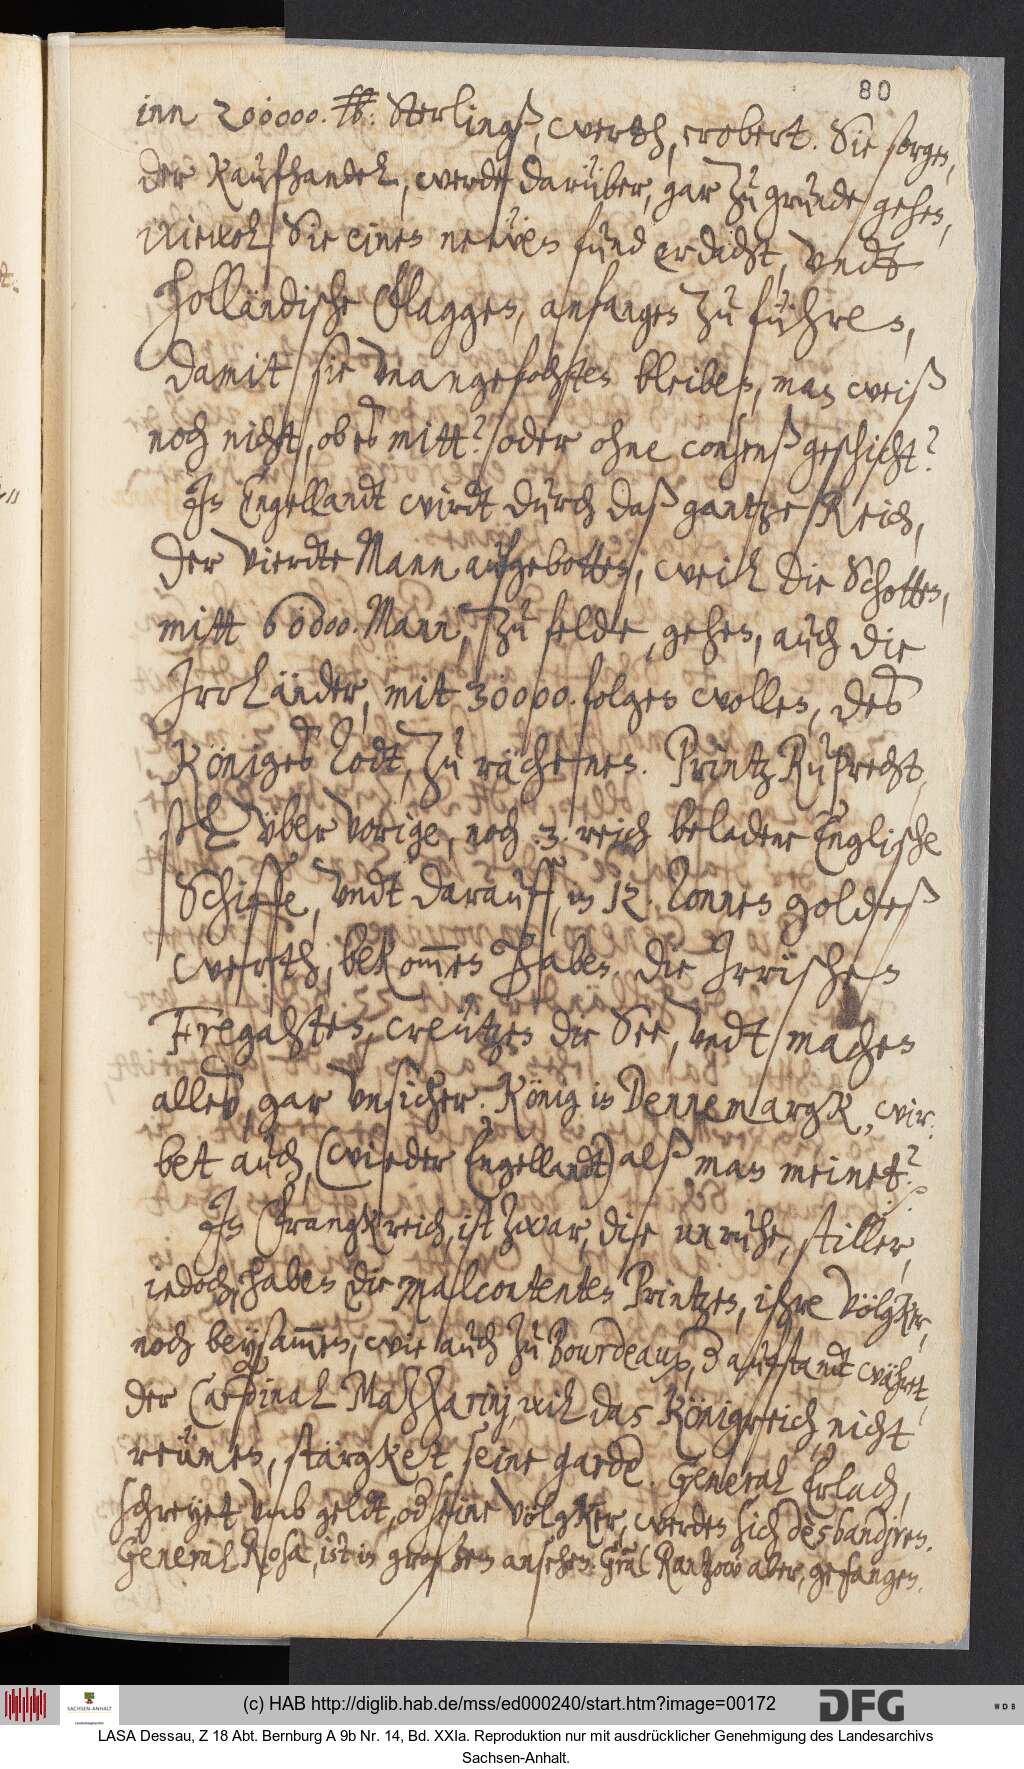 80
inn 200000. ℔: Sterlingß, werth, erobert. Sie sorgen,
der Kaufhandel, werde darüber, gar zu grunde gehen,
wiewol Sie einen neẅen fund erdicht, vndt
Holländische Flaggen, anfangen zu führen,
damit sie vnangefochten bleiben, man weiß
noch nicht, ob es mitt? oder ohne consenß geschicht?
In Engellandt wirdt durch daß gantze Reich,
der vierdte Mann aufgebotten, weil die Schotten,
mitt 60000. Mann, zu felde, gehen, auch die
Irrländer, mit 30000. folgen wollen, des
Königes Todt, zu rächenen. Printz Ruprecht,
sol vber vorige, noch .3. reich beladene Englische
Schiffe, vndt darauff, in 12. Tonnen goldeß
werth, bekom̅en haben. Die Irrischen
Fregahten, creützen die See, vndt machen
alles, gar vnsicher. König in Dennemargk, wir:
bet auch, (wieder Engellandt) alß man meinet?
In Frangkreich, ist zwar, die unruhe, stiller,
iedoch, haben die malcontenten Printzen, ihre Völgker,
noch beysam̅en, wie auch zu Bourdeaux, d aufstandt währet,
der Cardinal Mazzarinj, wil das Königreich, nicht
reümen, stärgket seine garde. General Erlach,
schreyet vmb geldt, od seine Völgker, werden sich desbandiren.
General Rosa, ist in großem ansehen. Gral Rantzow aber, gefangen.
(c) HAB http://diglib.hab.de/mss/ed000240/start.htm?image=00172
DFG
WDB
SACHSEN-ANHALT
LASA Dessau, Z 18 Abt. Bernburg A 9b Nr. 14, Bd. XXIa. Reproduktion nur mit ausdrücklicher Genehmigung des Landesarchivs
Sachsen-Anhalt.